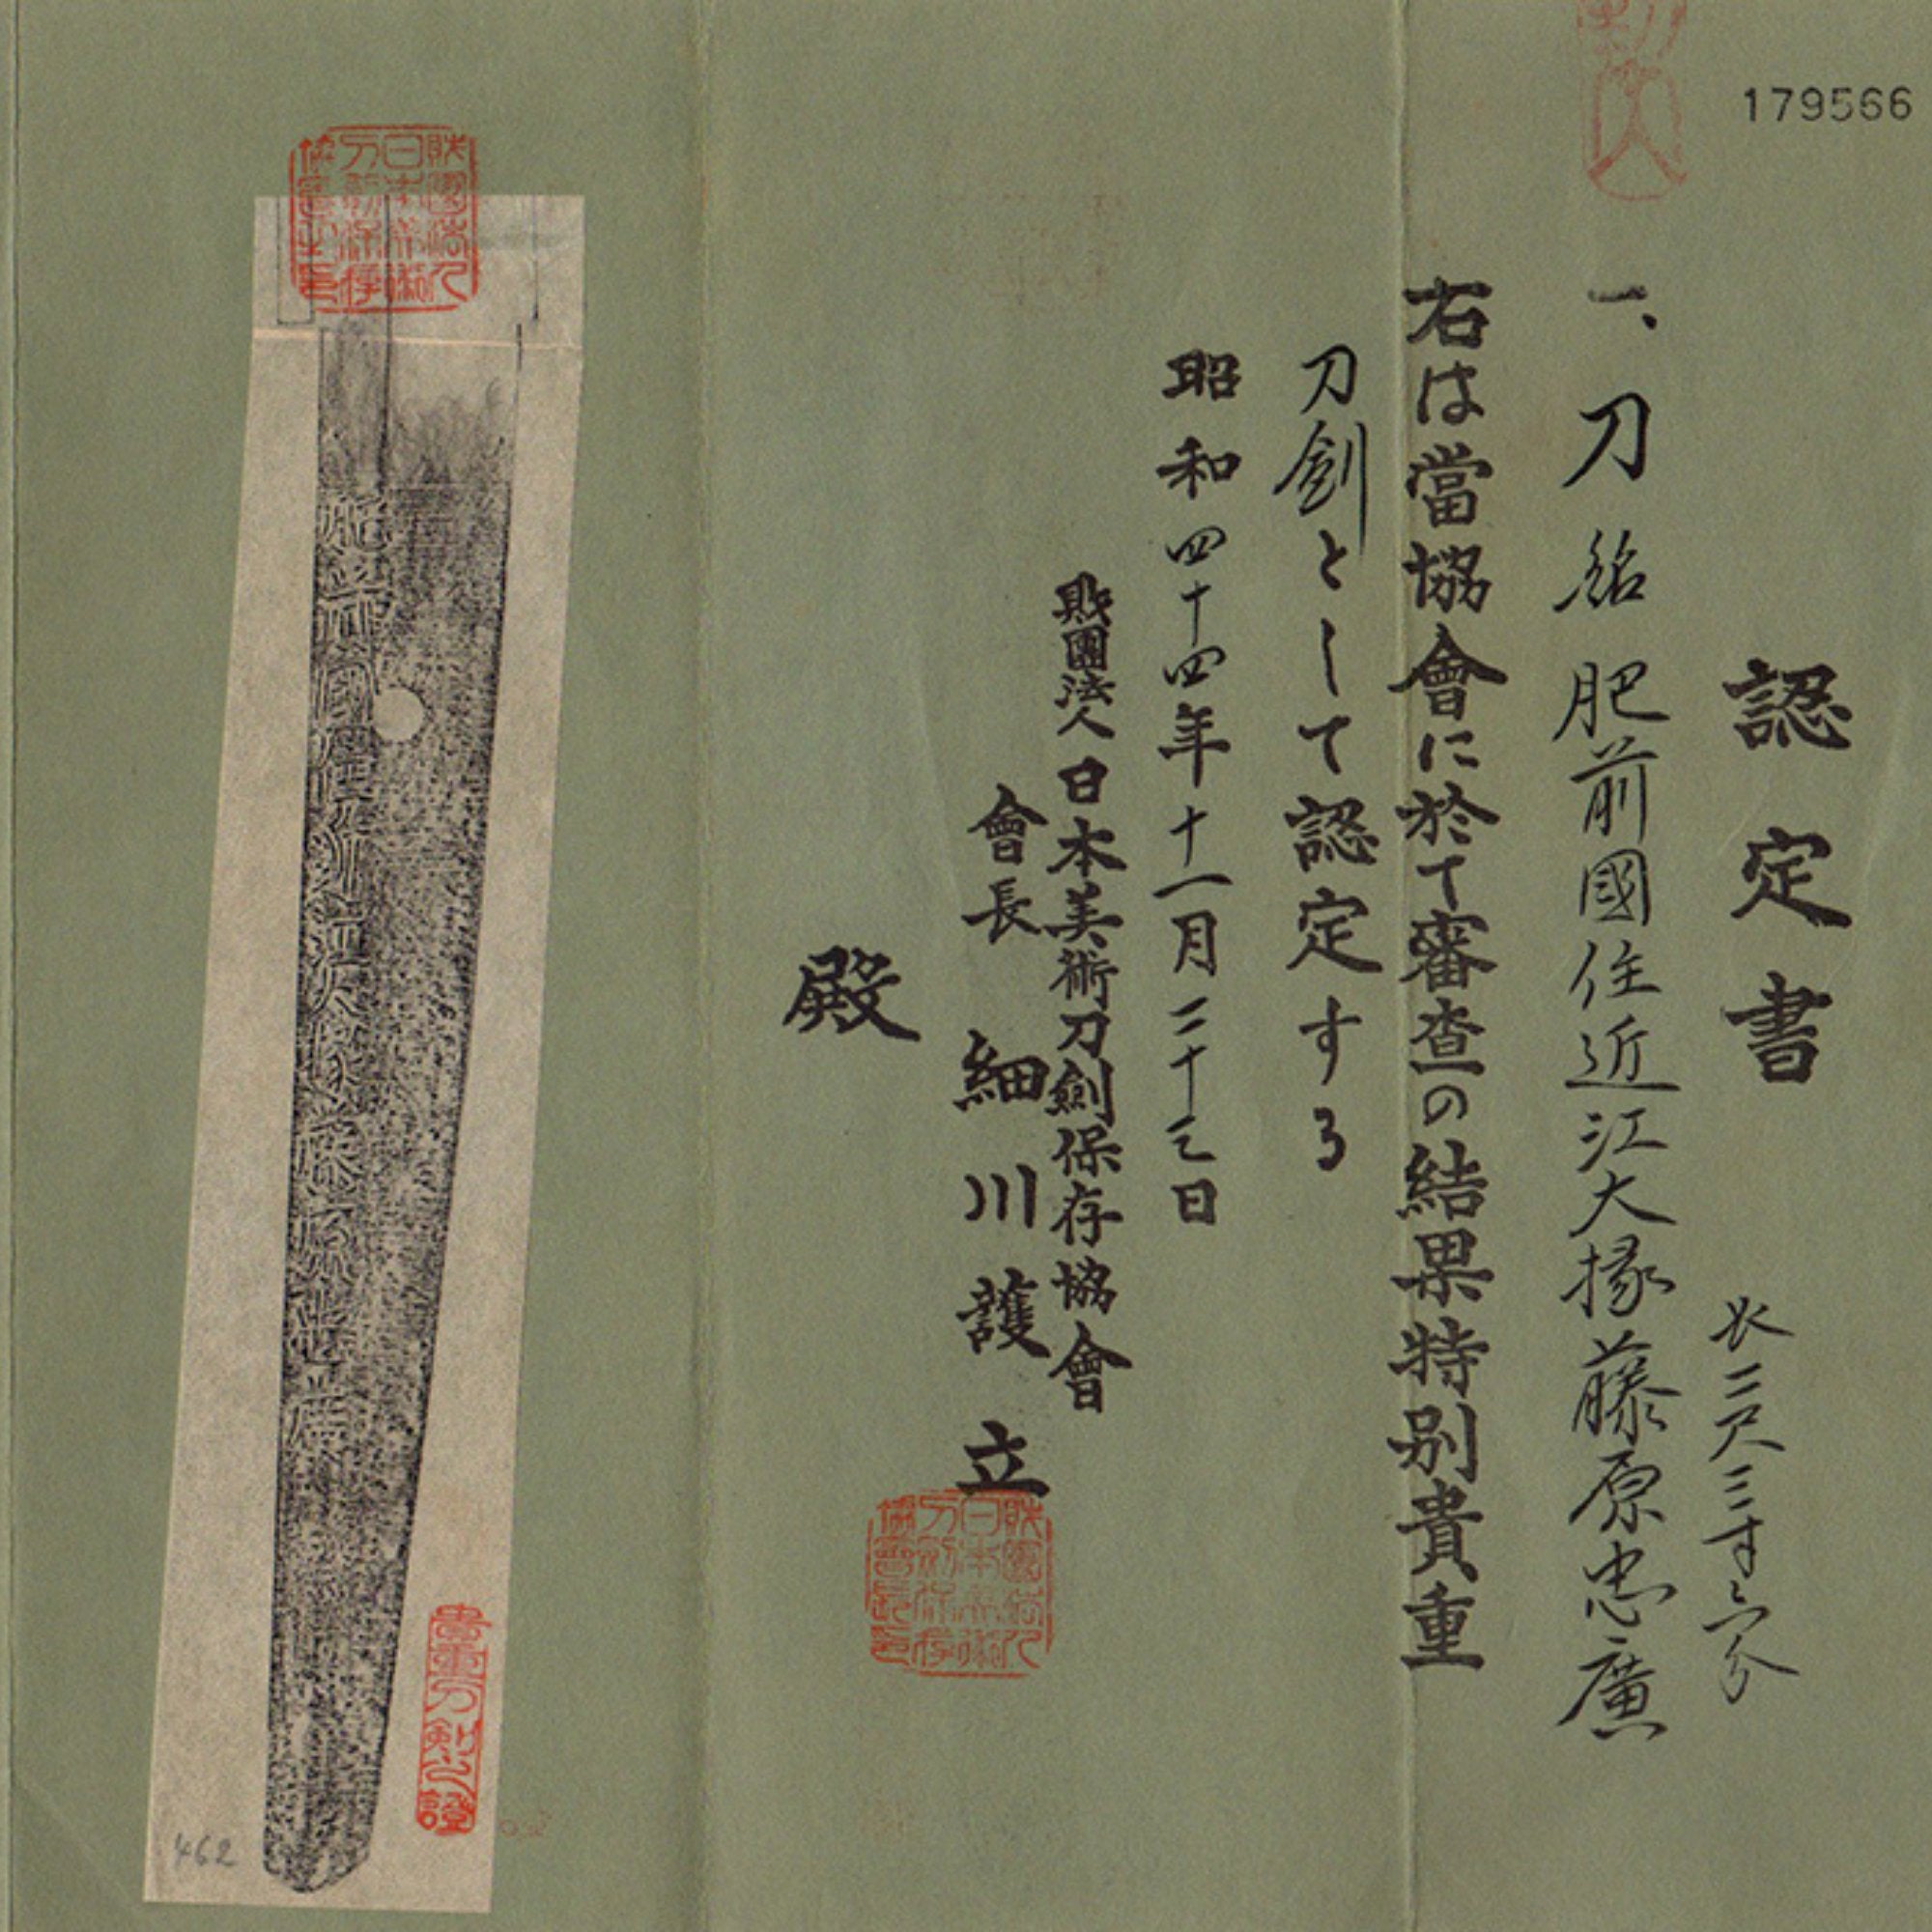 179566
認定書
長二尺三寸六分
一、刀 銘 肥前國住近江大掾藤原忠廣
右は當協會に於て審査の結果特別貴重
刀劍として認定する
昭和四十四年十一月二十三日
財團法人日本美術刀劍保存協會
會長 細川護立
財團法人
日本美術
刀劍保存
協會長印
殿
財團法人
日本美術
刀劍保存
協會長印
貴重刀剣之證
462